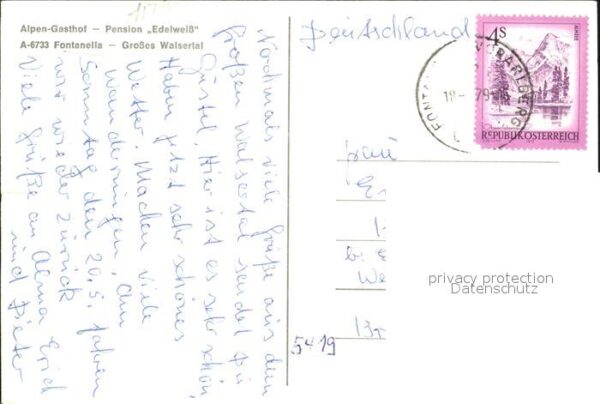 Alpen-Gasthof – Pension „Edelweiß"
A-6733 Fontanella – Großes Walsertal
Nochmals viele Grüße aus dem
Großen Walsertal sendet Dir
Gustel. Hier ist es sehr schön,
Haben jetzt sehr schönes
Wetter. Machen viele
Wanderungen. Am
Sonntag den 20.5. fahren
wir wieder zurück
Viele Grüße an Alma Erich
und Dieter
Deutschland
4S
ALMSEE
REPUBLIK ÖSTERREICH
VORARLBERG
FONTA
18- 79-18
Frau
We
privacy protection
Datenschutz
5419